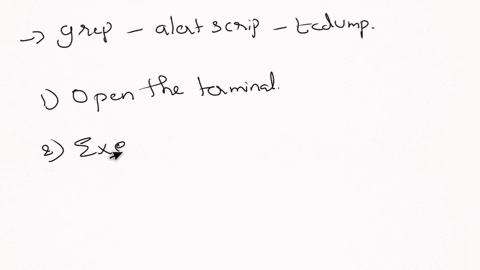 → grep - alert scrip - tcdump.
1) Open the terminal.
2) Exe